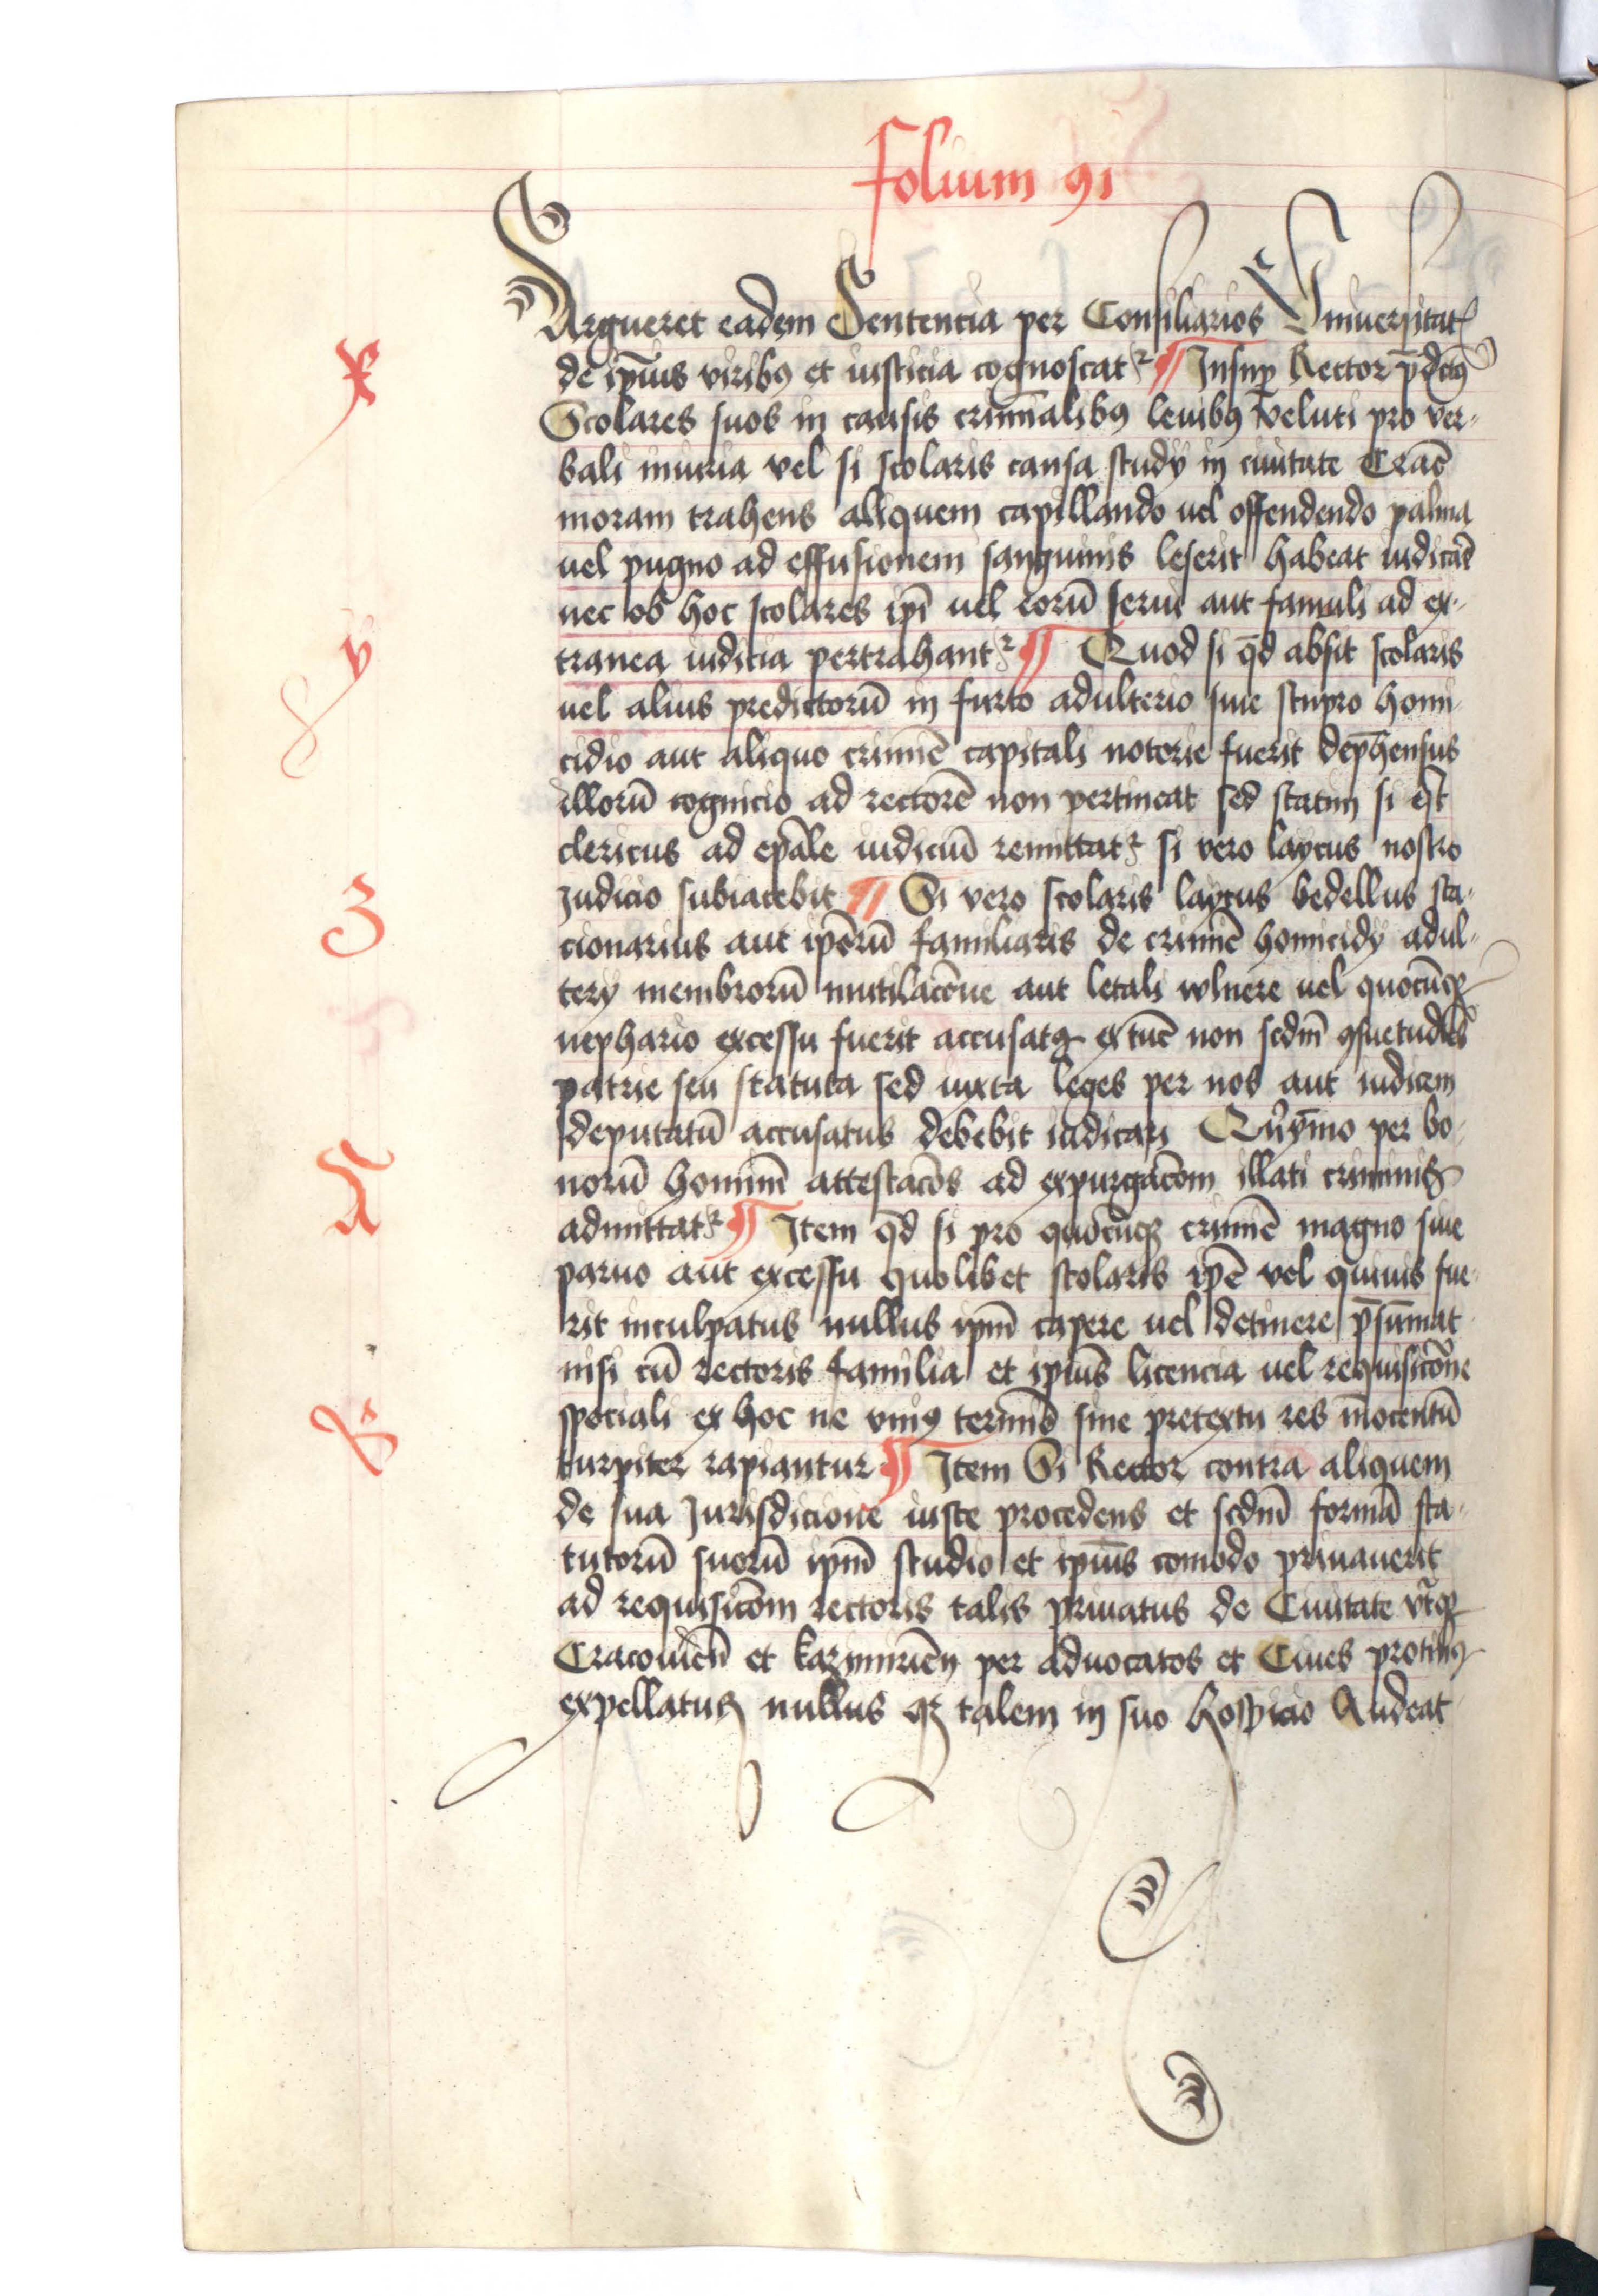 folium 91
Argueret eadem Sententia per Consiliarios Vniuersitat
x
de ip̄ius viribꝯ et iusticia cognoscat̛ ¶ Insuꝑ Rector p̄dc̄tꝯ
Scolares suos in causis crīminalibꝯ leuibꝯ veluti pro ver-
bali iniuria vel si scolaris causa studÿ in ciuitate Crac̄
moram trahens aliquem capillando uel offendendo palma
uel pugno ad effusionem sanguinis leserit habeat iudicar̄e
nec ob hoc scolares ip̄i uel eorū serui aut famuli ad ex-
y
tranea iudicia pertrahant̛ ¶ Quod si qd̄ absit scolaris
uel alius predictorū in furto adulterio siue stupro homi-
cidio aut aliquo crimīe capitali notorie fuerit dep̄hensus
illorū cognicio ad rectorē non pertineat sed statim si est
clericus ad ep̄ale iudiciū remittat̛ si vero laycus nostro
Z
Judicio subiacebit ¶ Si vero scolaris laycus bedellus sta-
cionarius aut ip̄orū familiaris de crimīe homicidÿ adul-
terÿ membrorū mutilac̄oue aut letali wlnere uel quocūqꝫ
nephario excessu fuerit accusatꝯ extūc non scdm̄ ꝯsuetudīes
patrie seu statuta sed iuxta leges per nos aut iudicem
deputatū accusatus debebit iudicari Quīymo per bo-
norū hominū attestac̄oes ad expurgac̄oem illati criminis
A
admittat̛ ¶ Item qd̄ si pro quocūqꝫ crimīe magno siue
paruo aut excessu quolibet scolaris ip̄e vel quiuis fue-
rit inculpatus nullus ip̄m capere uel detinere p̄sūmat
nisi cū rectoris familia et ip̄ius licencia uel requisic̄one
B
speciali ex hoc ne vniꝯ terminō siue pretextu res inocentū
turpiter rapiantur ¶ Item Si Rector contra aliquem
de sua Jurisdicione iuste procedens et scdm̄ formā sta-
tutorū suorū ip̄m studio et ip̄ius comodo priuauerit
ad requisic̄oem rectoris talis priuatus de Ciuitate vtqꝫ
Cracouien̄ et kazimirien̄ per aduocatos et Ciues protinꝯ
expellatur nullus qꝫ talem in suo hospicio Audeat